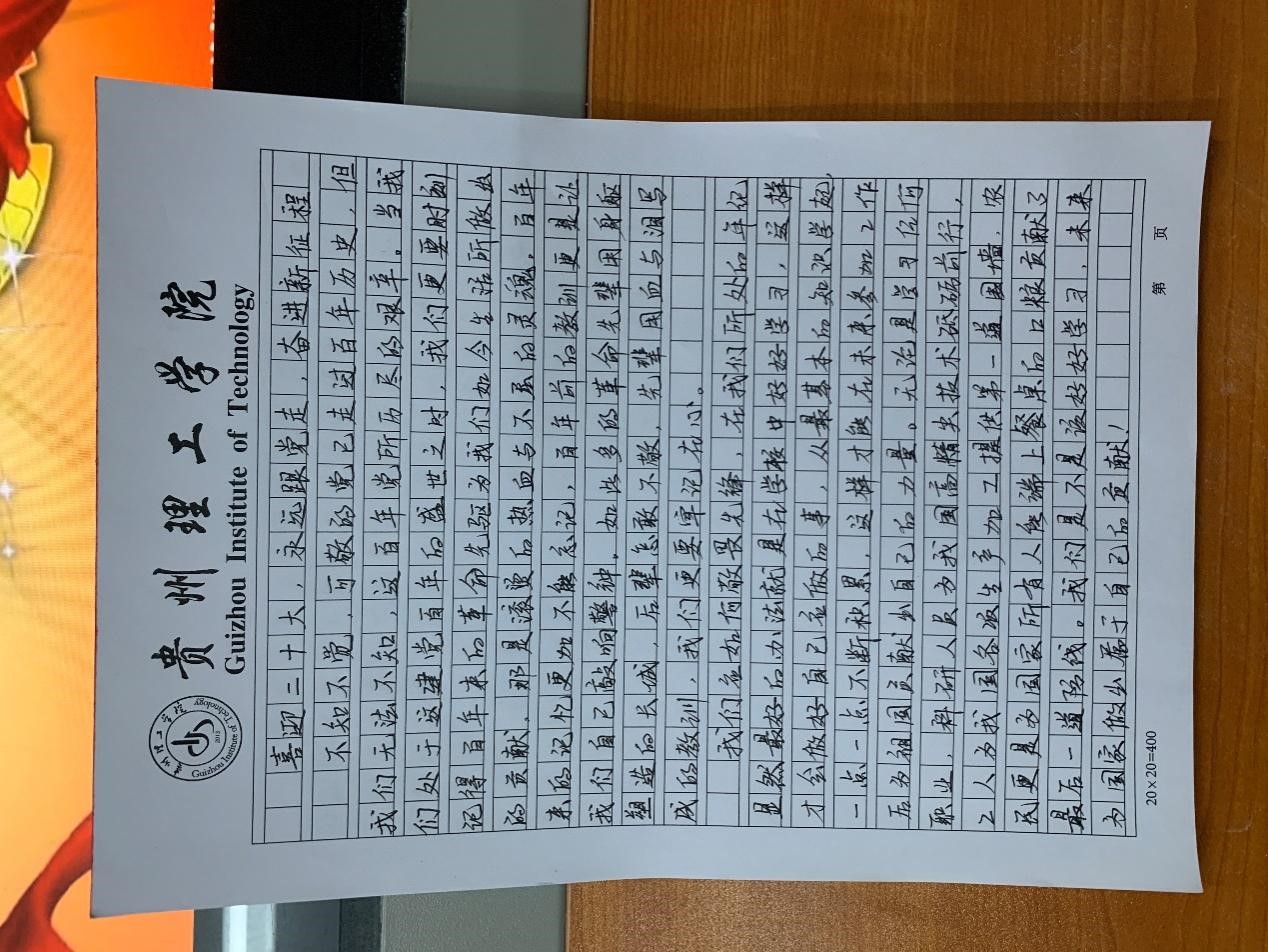 贵州理工学院
Guizhou Institute of Technology
贵州理工学院
2013
Guizhou Institute of Technology
喜迎二十大，永远跟党走，奋进新征程
不知不觉，可敬的党已走过百年历史，但
我们无法不知，这百年党所历尽的艰辛。当我
们处于这建党百年的盛世之时，我们更要时刻
记得百年来的革命先驱为我们如今生活所做出
的贡献，那是滚烫的热血与不屈的灵魂，百年
来的记忆更加不能忘记，百年前的教训更是让
我们自己敲响警钟，如此多的革命先辈用身躯
塑造的长城，后辈怎敢不敬，先辈用血与泪写
成的教训，我们更要牢记在心。
我们应如何敬畏先锋，在我们所处的年纪
显然最好的办法就是在学校中好好学习，这样
才会做好自己应做的事，从最基本的知识学起，
一点一点不断积累，这样才能在未来参加工作
后为祖国贡献出自己的力量。无论是学习任何
职业，科研人员为我国高精尖技术砥砺前行，
工人为我国各项生产加工提供第一道围墙，农
民更是为国家所有人能端上餐桌的口粮贡献了
最后一道防线。我们是不是该好好学习，未来
为国家做出属于自己的贡献！
20×20=400
第 页